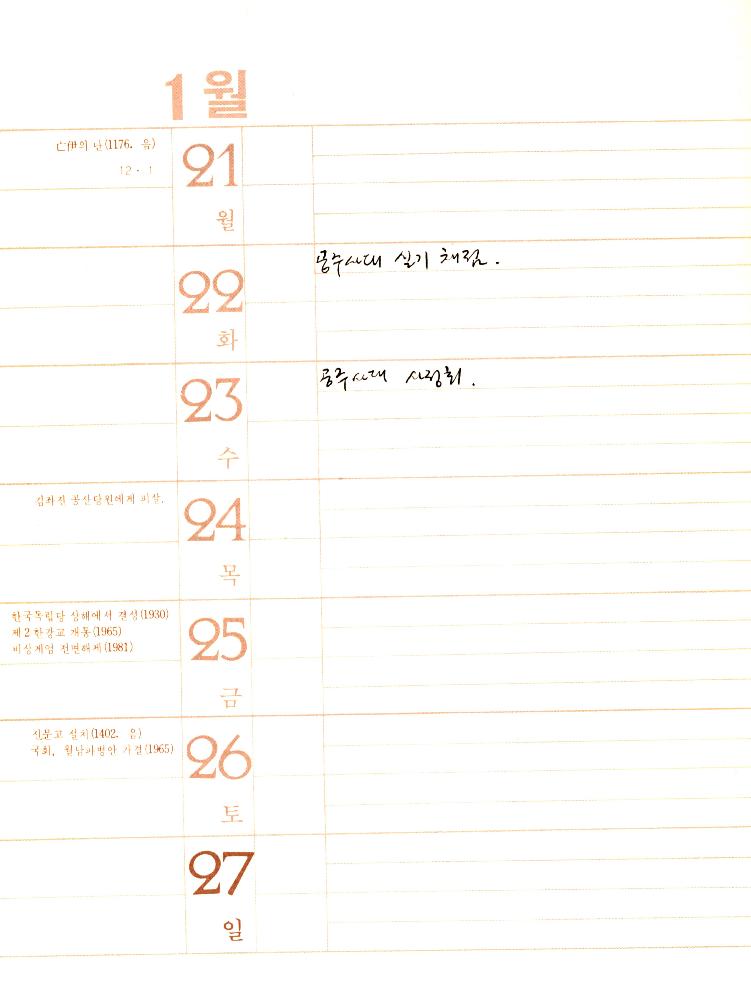 1월
亡伊의 난(1176. 음)
12 · 1
21
월
22
화
공주사대 실기 채점.
23
수
공주사대 사정회.
김좌진 공산당원에게 피살.
24
목
한국독립당 상해에서 결성(1930)
제2한강교 개통(1965)
비상계엄 전면해제(1981)
25
금
신문고 설치(1402. 음)
국회, 월남파병안 가결(1965)
26
토
27
일